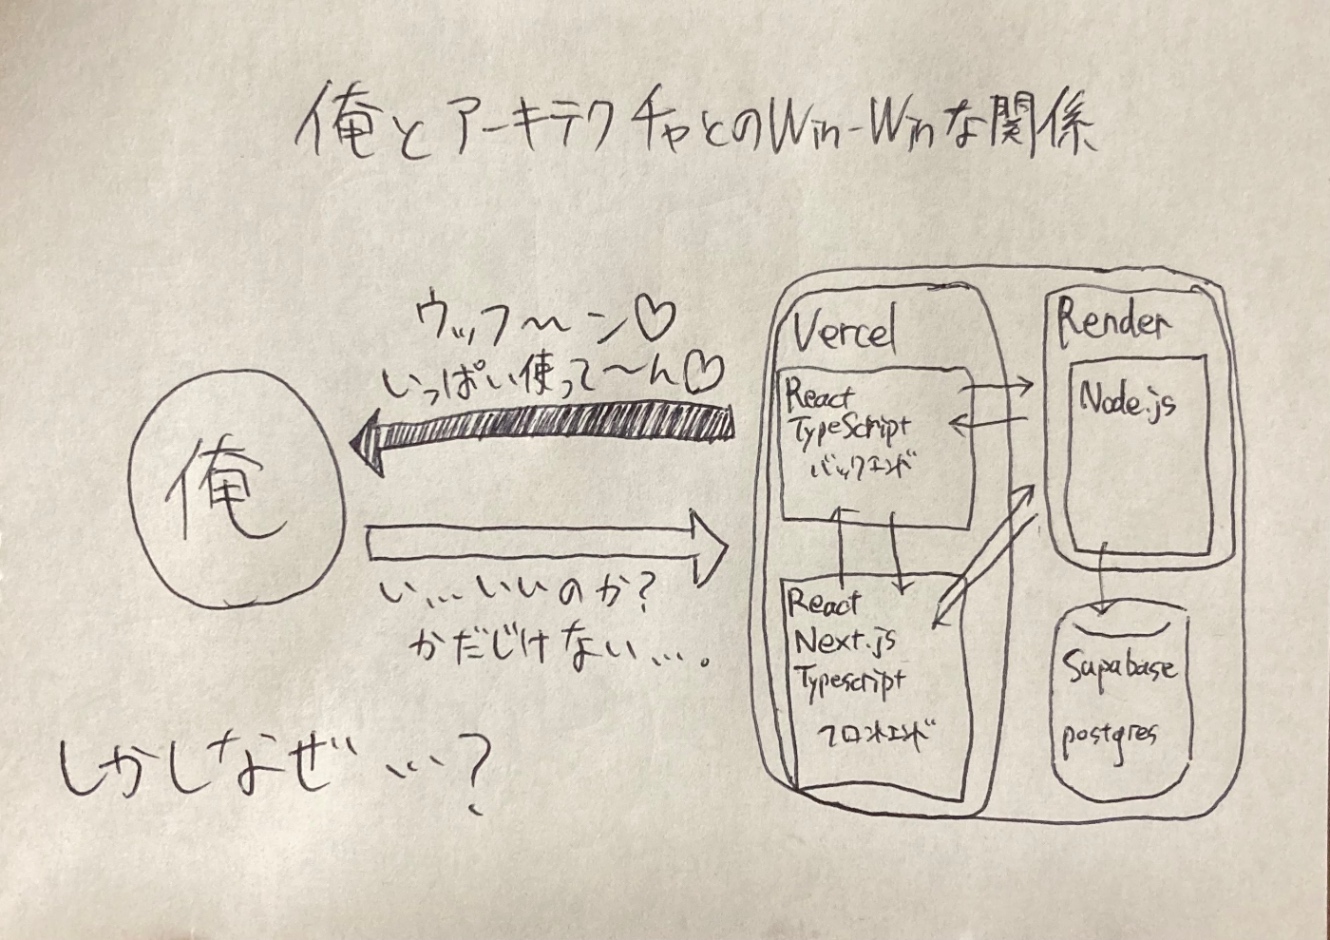 俺とアーキテクチャとのWin-Winな関係
ウッフ〜ン♡
いっぱい使って〜ん♡
俺
い…いいのか?
かだじけない…。
しかしなぜ…?
Vercel
React
TypeScript
バックエンド
React
Next.js
Typescript
フロントエンド
Render
Node.js
Supabase
postgres